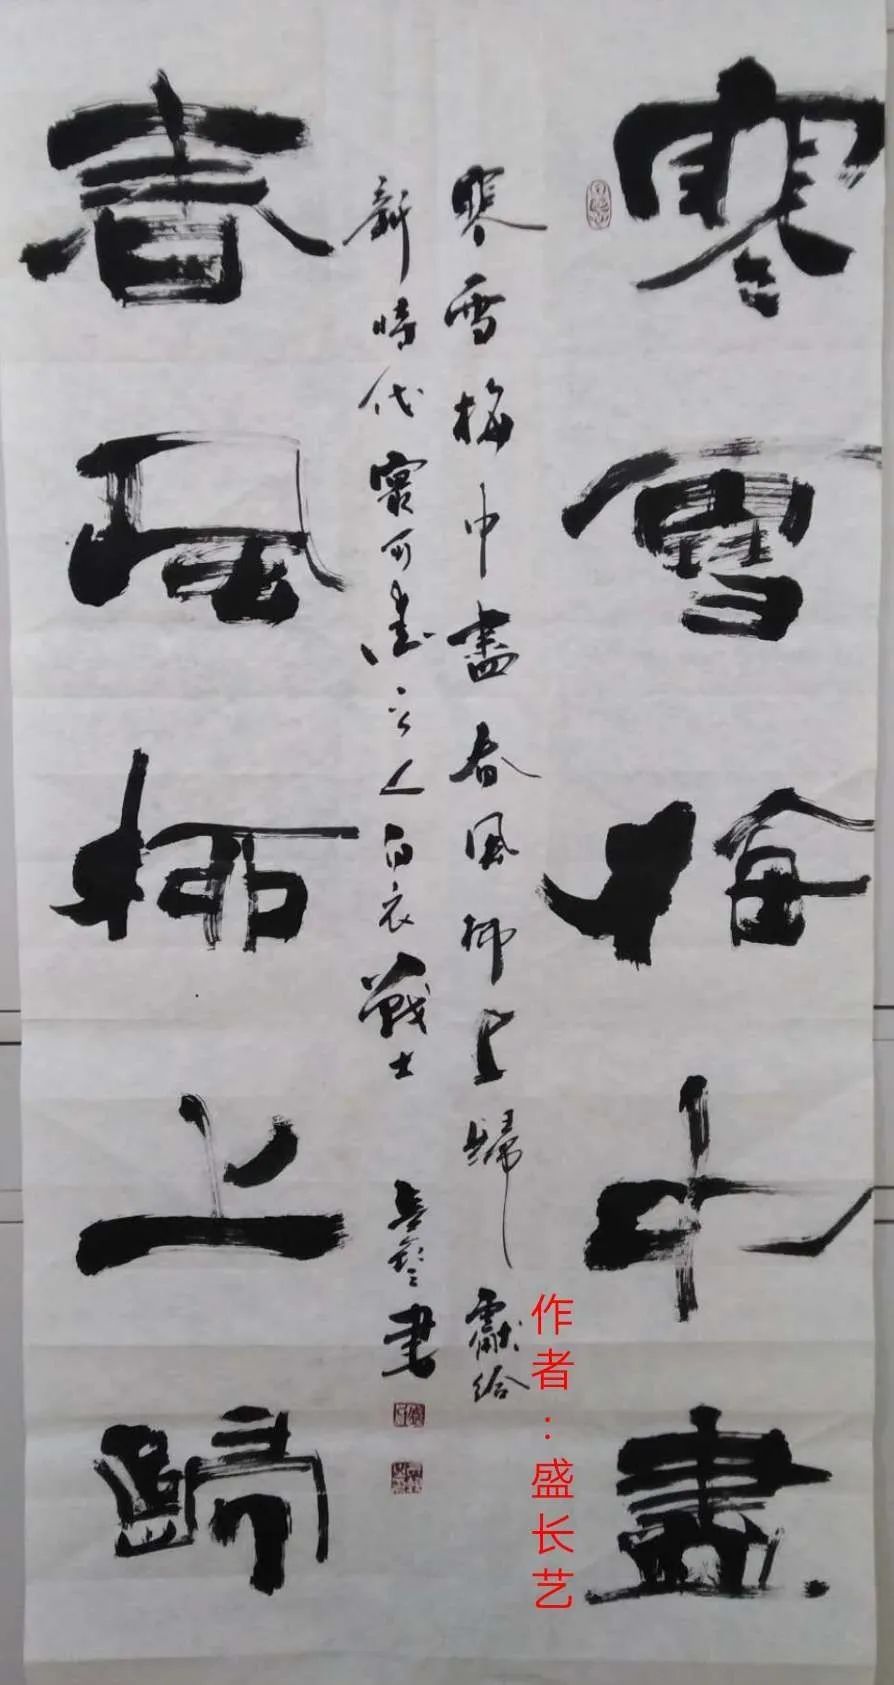 寒雪梅中盡
寒雪梅中盡春風柳上歸 獻給
新時代最可愛之人白衣戰士 長藝書
春風柳上歸
作者:盛长艺